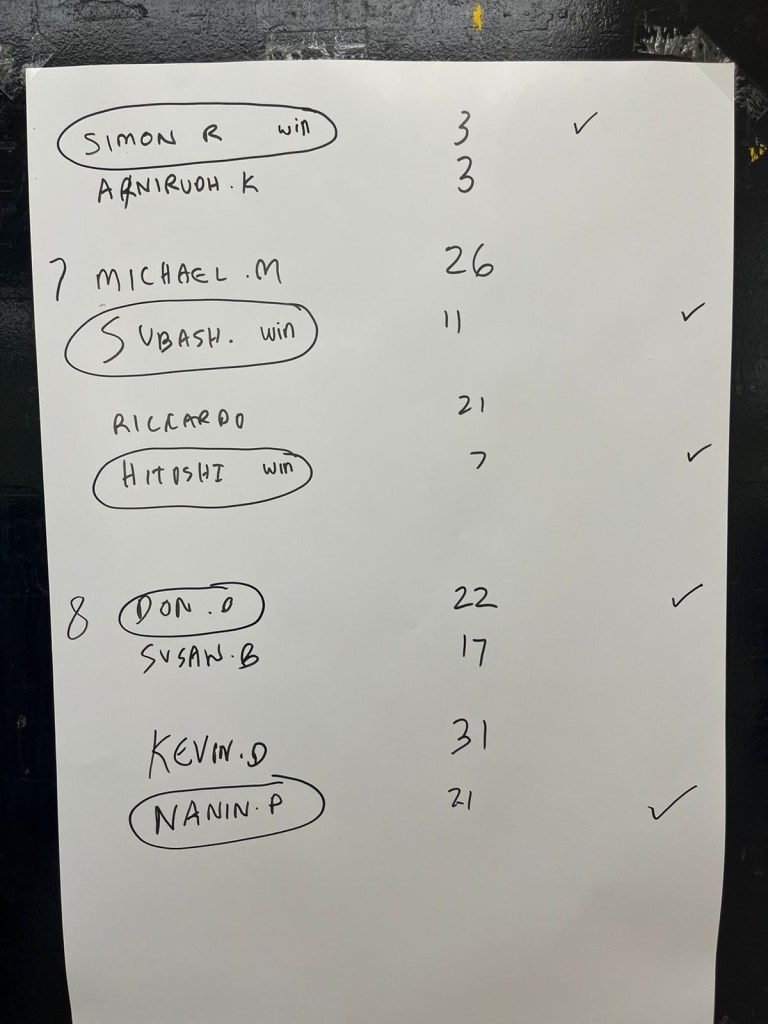 SIMON R win 3 ✓
ANIRUDH.K 3
7 MICHAEL.M 26
SUBASH. win 11 ✓
RICCARDO 21
HITOSHI win 7 ✓
8 DON.D 22 ✓
SUSAN.B 17
KEVIN.D 31
NANIN.P 21 ✓